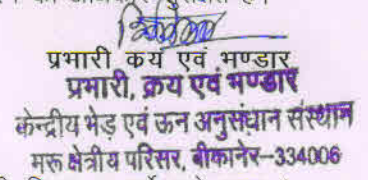 प्रभारी क्रय एवं भण्डार
प्रभारी, क्रय एवं भण्डार
केन्द्रीय भेड़ एवं ऊन अनुसंधान संस्थान
मरू क्षेत्रीय परिसर, बीकानेर–334006